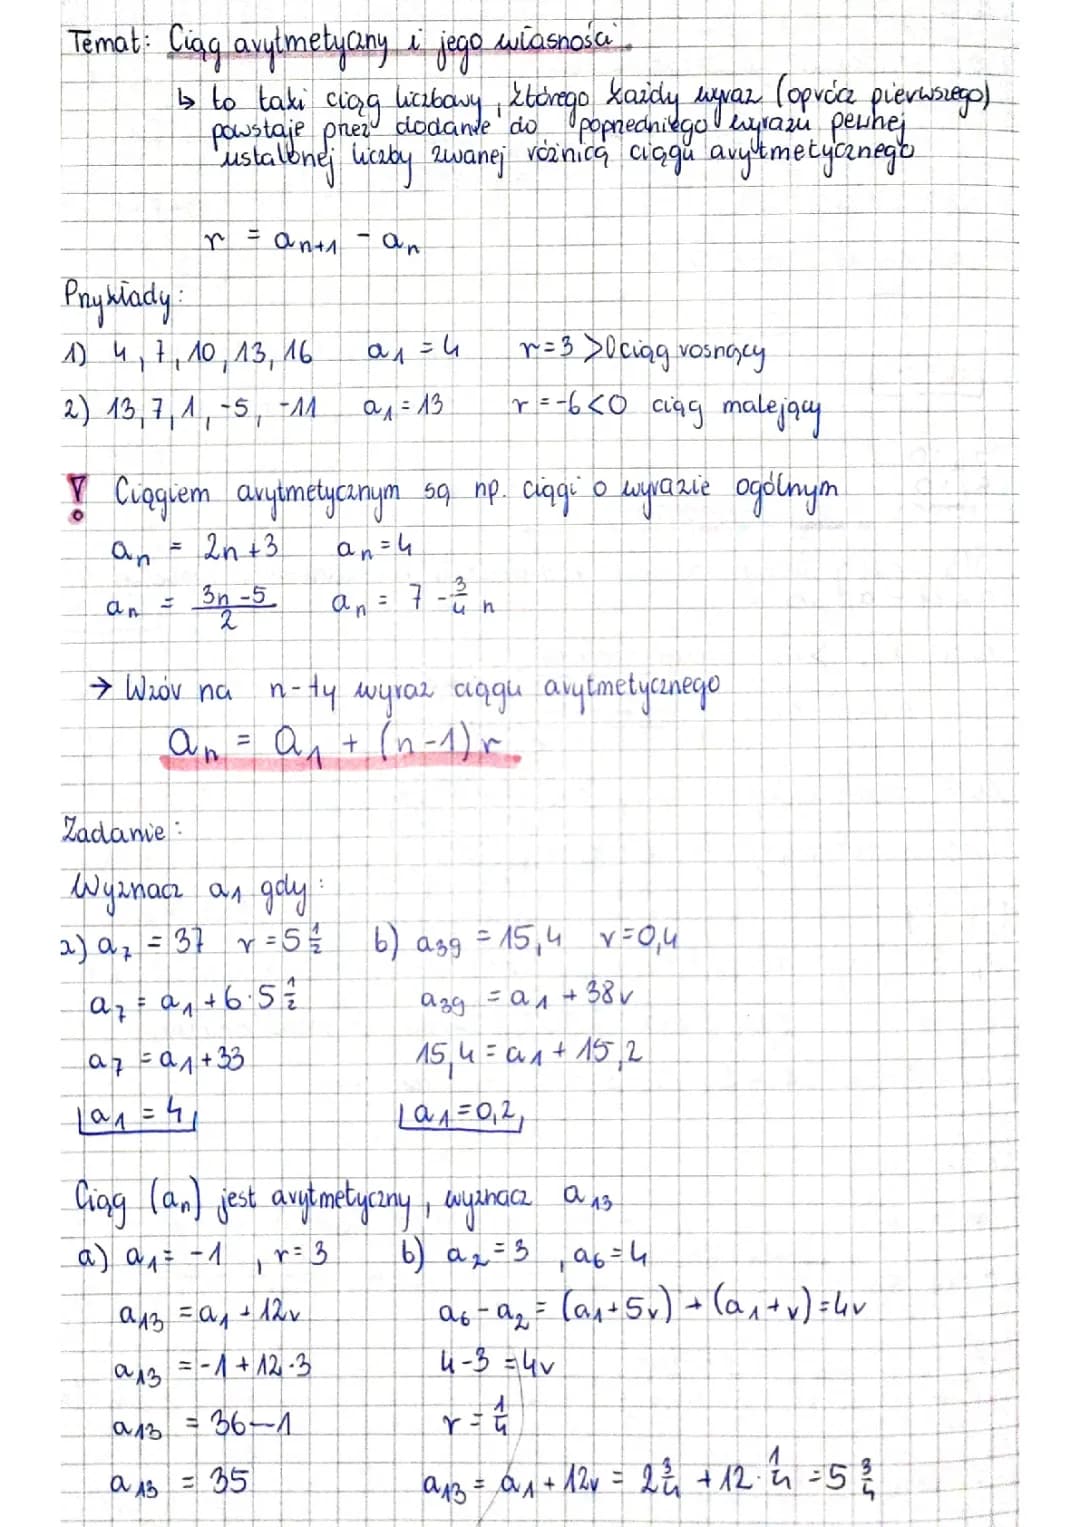 Temat: Ciąg arytmetyczny i jego własności.
↳ to taki ciąg liczbowy, którego każdy wyraz (oprócz pierwszego)
powstaje przez dodanie do poprzedniego wyrazu pewnej
ustalonej liczby zwanej różnicą ciągu arytmetycznego
r = aₙ₊₁ - aₙ
Przykłady:
1) 4, 7, 10, 13, 16 a₁ = 4 r=3 >0 ciąg rosnący
2) 13, 7, 1, -5, -11 a₁ = 13 r = -6<0 ciąg malejący
! Ciągiem arytmetycznym są np. ciągi o wyrazie ogólnym
aₙ = 2n+3 aₙ = 4
aₙ = (3n-5)/2 aₙ = 7 - 3/4 n
→ Wzór na n-ty wyraz ciągu arytmetycznego
aₙ = a₁ + (n-1) r
Zadanie:
Wyznacz a₁ gdy:
a) a₇ = 37 r = 5 1/2 b) a₃₉ = 15,4 r=0,4
a₇ = a₁ + 6·5 1/2 a₃₉ = a₁ + 38r
a₇ = a₁ + 33 15,4 = a₁ + 15,2
a₁ = 4 a₁ = 0,2
Ciąg (aₙ) jest arytmetyczny, wyznacz a₁₃
a) a₁ = -1, r = 3 b) a₂ = 3, a₆ = 4
a₁₃ = a₁ + 12r a₆ - a₂ = (a₁+5r) + (a₁+r) = 4r
a₁₃ = -1 + 12·3 4-3 = 4r
a₁₃ = 36-1 r = 1/4
a₁₃ = 35 a₁₃ = a₁ + 12r = 2 3/4 + 12·1/4 = 5 3/4